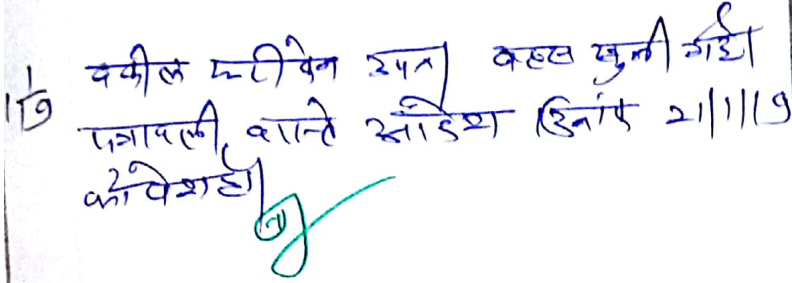 वकील फरीकेन उप०। बहस सुनी गई।
पत्रावली वास्ते आदेश दिनांक 21/1/19
को पेश हो।